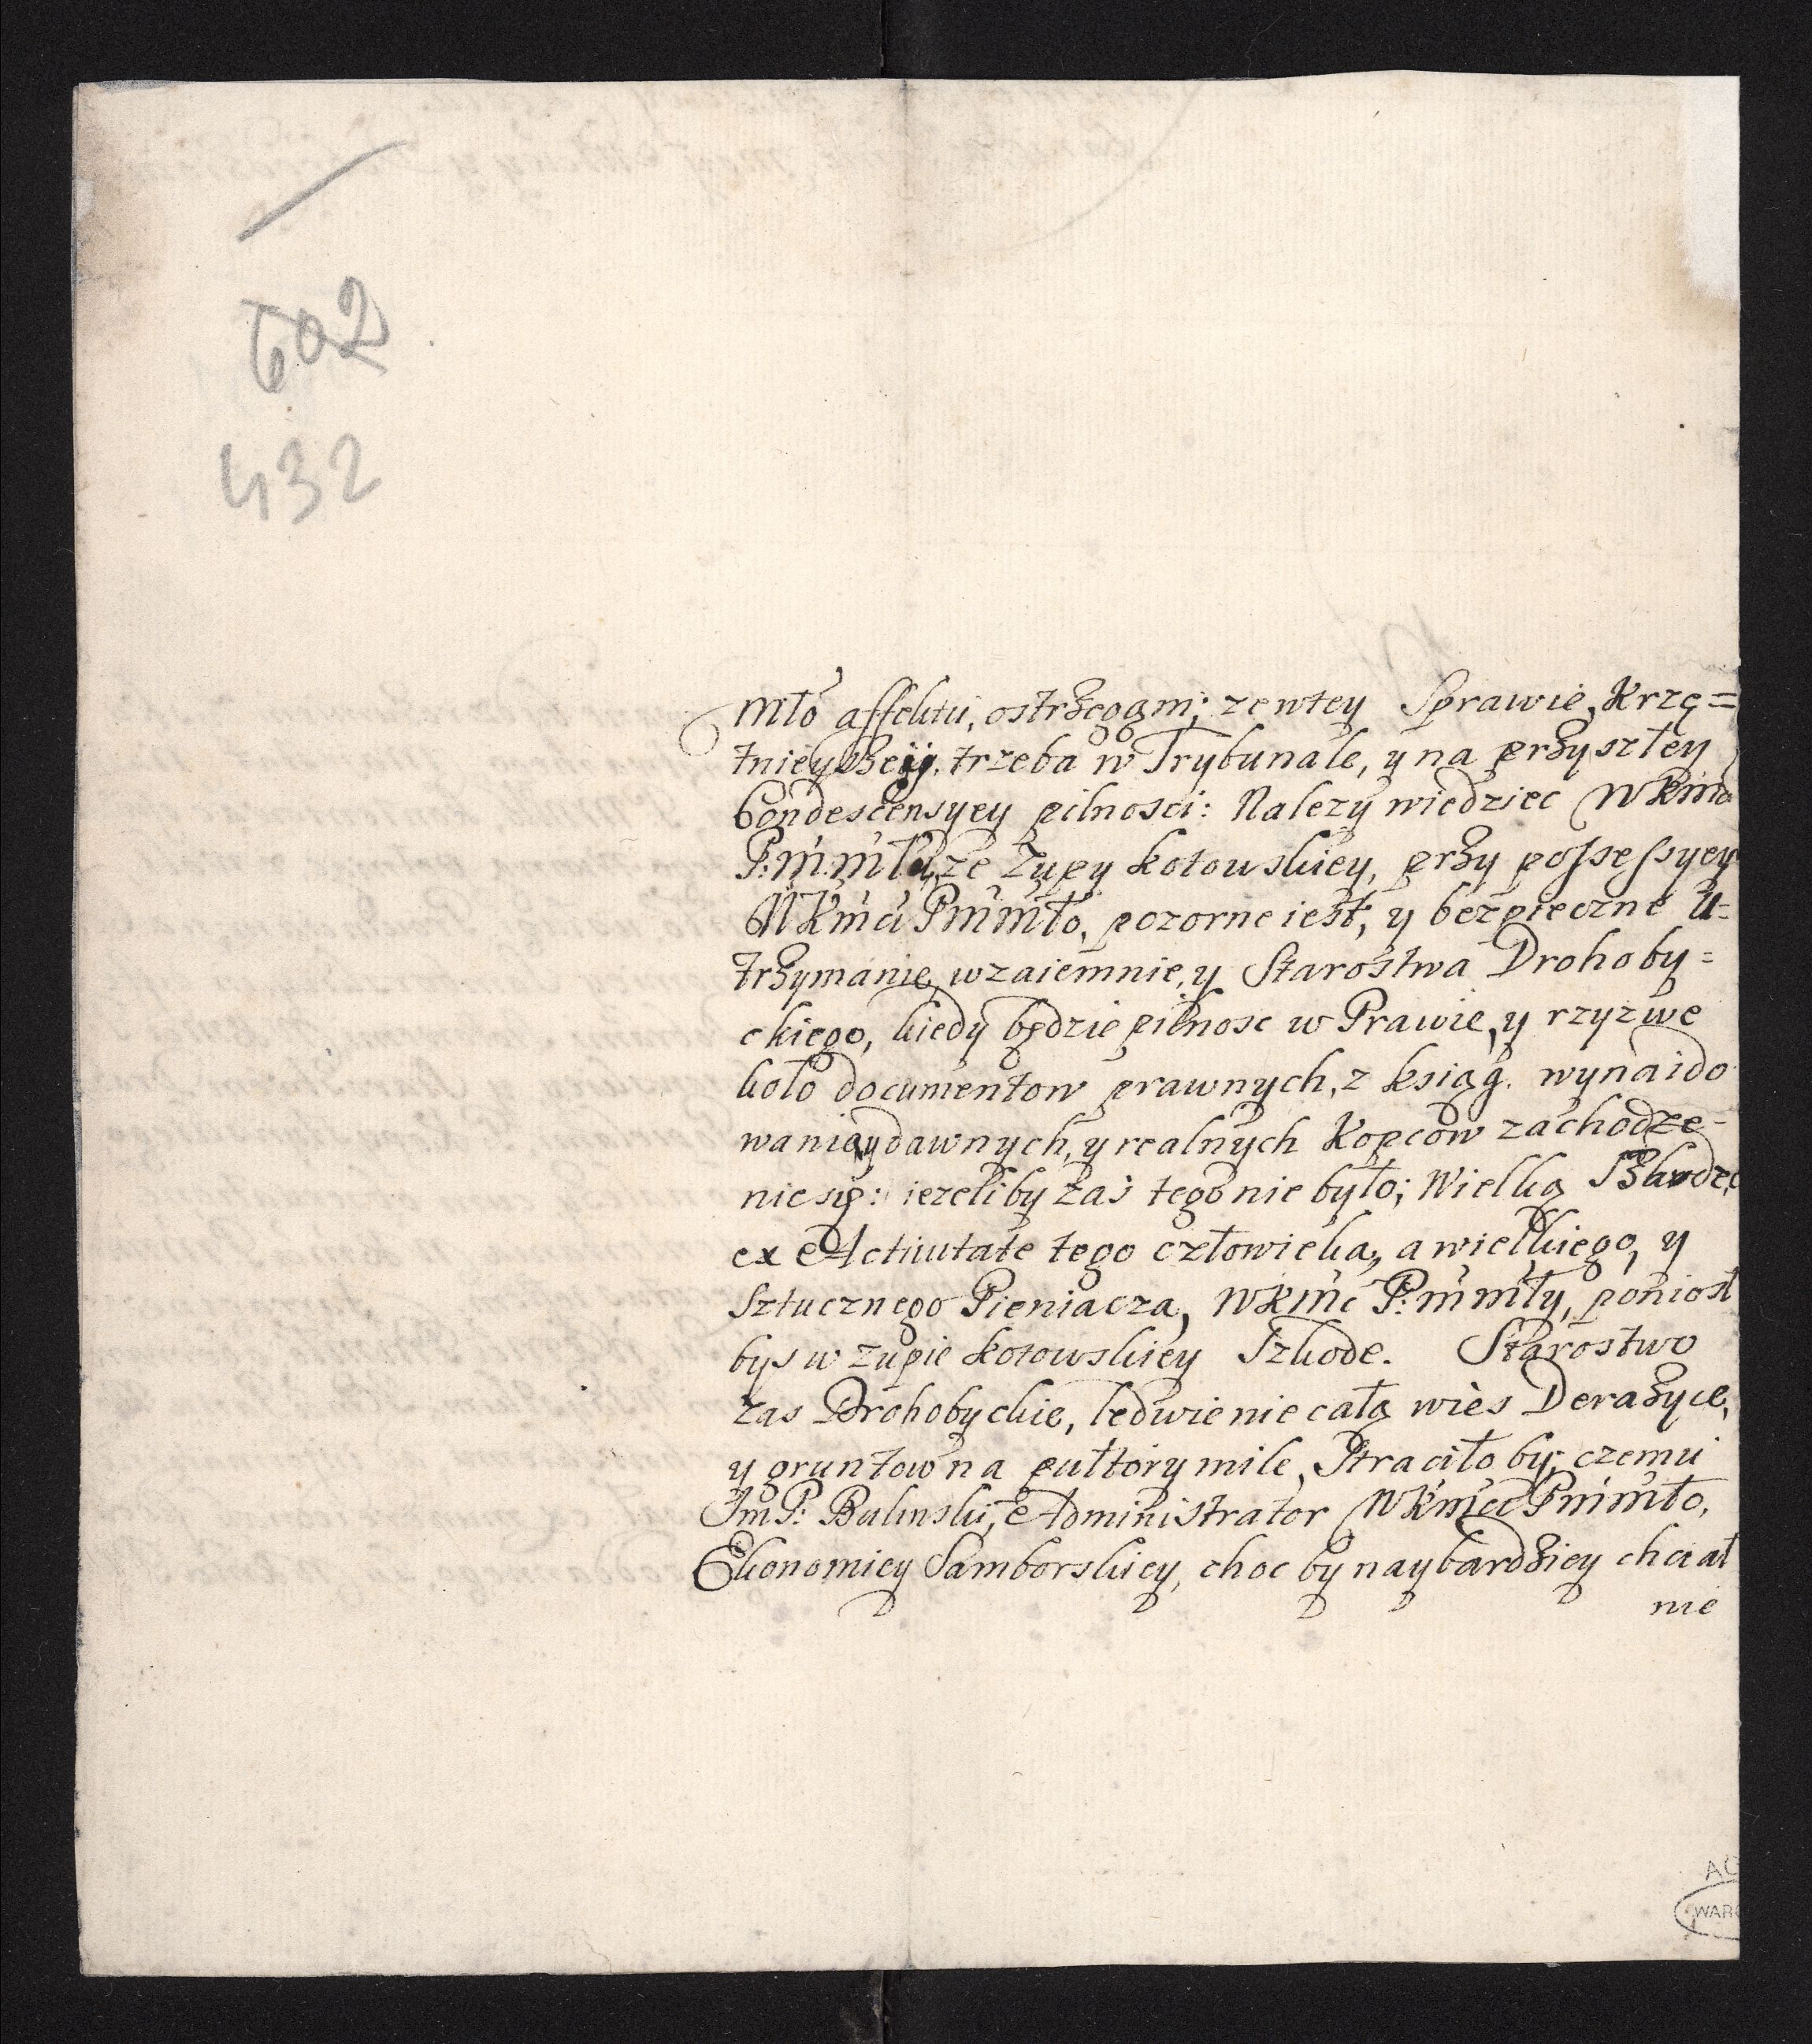 602
432
Młó affektu, ostrzegam; ze w tey Sprawie, Krzę=
tnieyszey, trzeba w Trybunale, y na przyszłey
Condescensyey pilnosci: Nalezy wiedziec WKmci
P: m: młu, ze Zupy kotowskiey, przy possessyey
WKmci Pm mło, pozorne iest, y bezpieczne U=
trzymanie, wzaiemnie, y Starostwa Drohoby=
ckiego, kiedy będzie pilnosc w Prawie, y rzyzwe
koło documentow prawnych, z ksiąg. wynaido
wania, y dawnych, y realnych Kopcow zachodze-
nie się: iezeliby zaś tego nie było; Wielką Szkodę,
ex Activitate tego człowieka, a wielkiego, y
Sztucznego Pieniacza, WKmc P: m mły, poniosł
bys w zupie kotowskiey Szkode. Starostwo
zas Drohobyckie, ledwie nie całą wies Derazyce,
y gruntow na pułtory mile, Straciło by; czemu
Jm P: Bulinski, Administrator WKmci Pm mło,
Ekonomiey Samborskiey, choc by naybardziey chciał
nie
AG
WAR